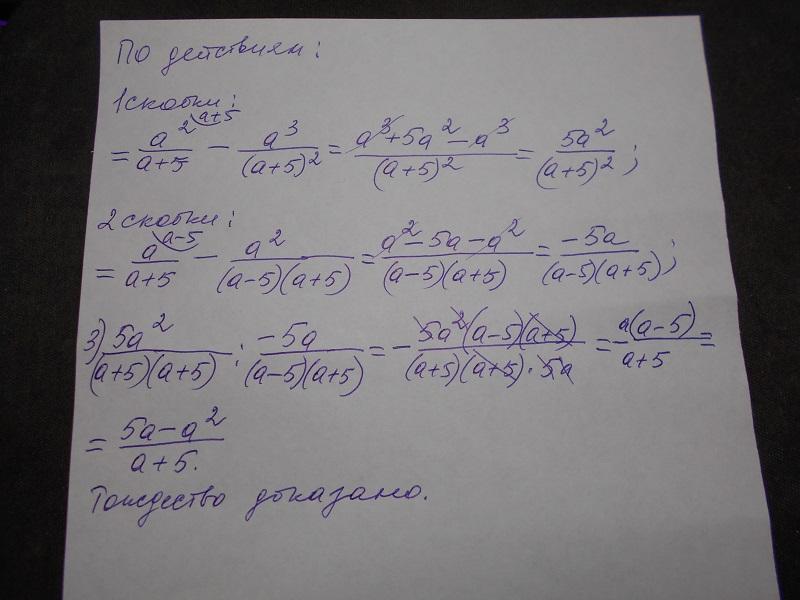 По действиям:
1 скобки:
= a²/(a+5) ^(a+5) − a³/(a+5)² = (a³+5a²−a³)/(a+5)² = 5a²/(a+5)²;
2 скобки:
= a/(a+5) ^(a−5) − a²/((a−5)(a+5)) = (a²−5a−a²)/((a−5)(a+5)) = −5a/((a−5)(a+5));
3) 5a²/((a+5)(a+5)) : −5a/((a−5)(a+5)) = −5a²(a−5)(a+5)/((a+5)(a+5)·5a) = −a(a−5)/(a+5) =
= (5a−a²)/(a+5).
Тождество доказано.